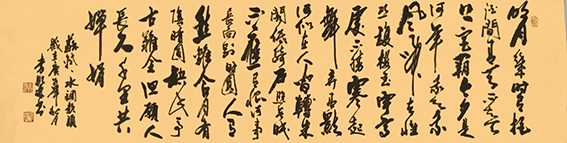 明月幾時有把
酒問青天不知
天上宮闕今夕是
何年我欲乘
風歸去又恐
瓊樓玉宇高
處不勝寒起
舞弄清影
何似在人間轉朱
閣低綺戶照無眠
不應有恨何事
長向別時圓人有
悲歡離合月有
陰晴圓缺此事
古難全但願人
長久千里共
嬋娟
蘇軾水調歌頭